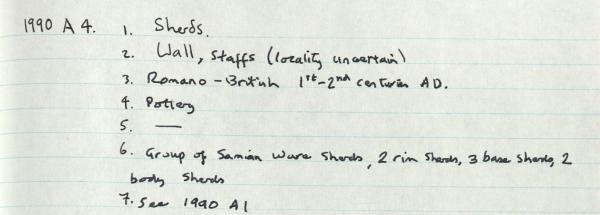 1990 A 4. 1. Sherds.
2. Wall, Staffs (locality uncertain)
3. Romano-British 1st-2nd centuries AD.
4. Pottery
5. —
6. Group of Samian Ware Sherds, 2 rim sherds, 3 base sherds, 2
body sherds
7. See 1990 A1